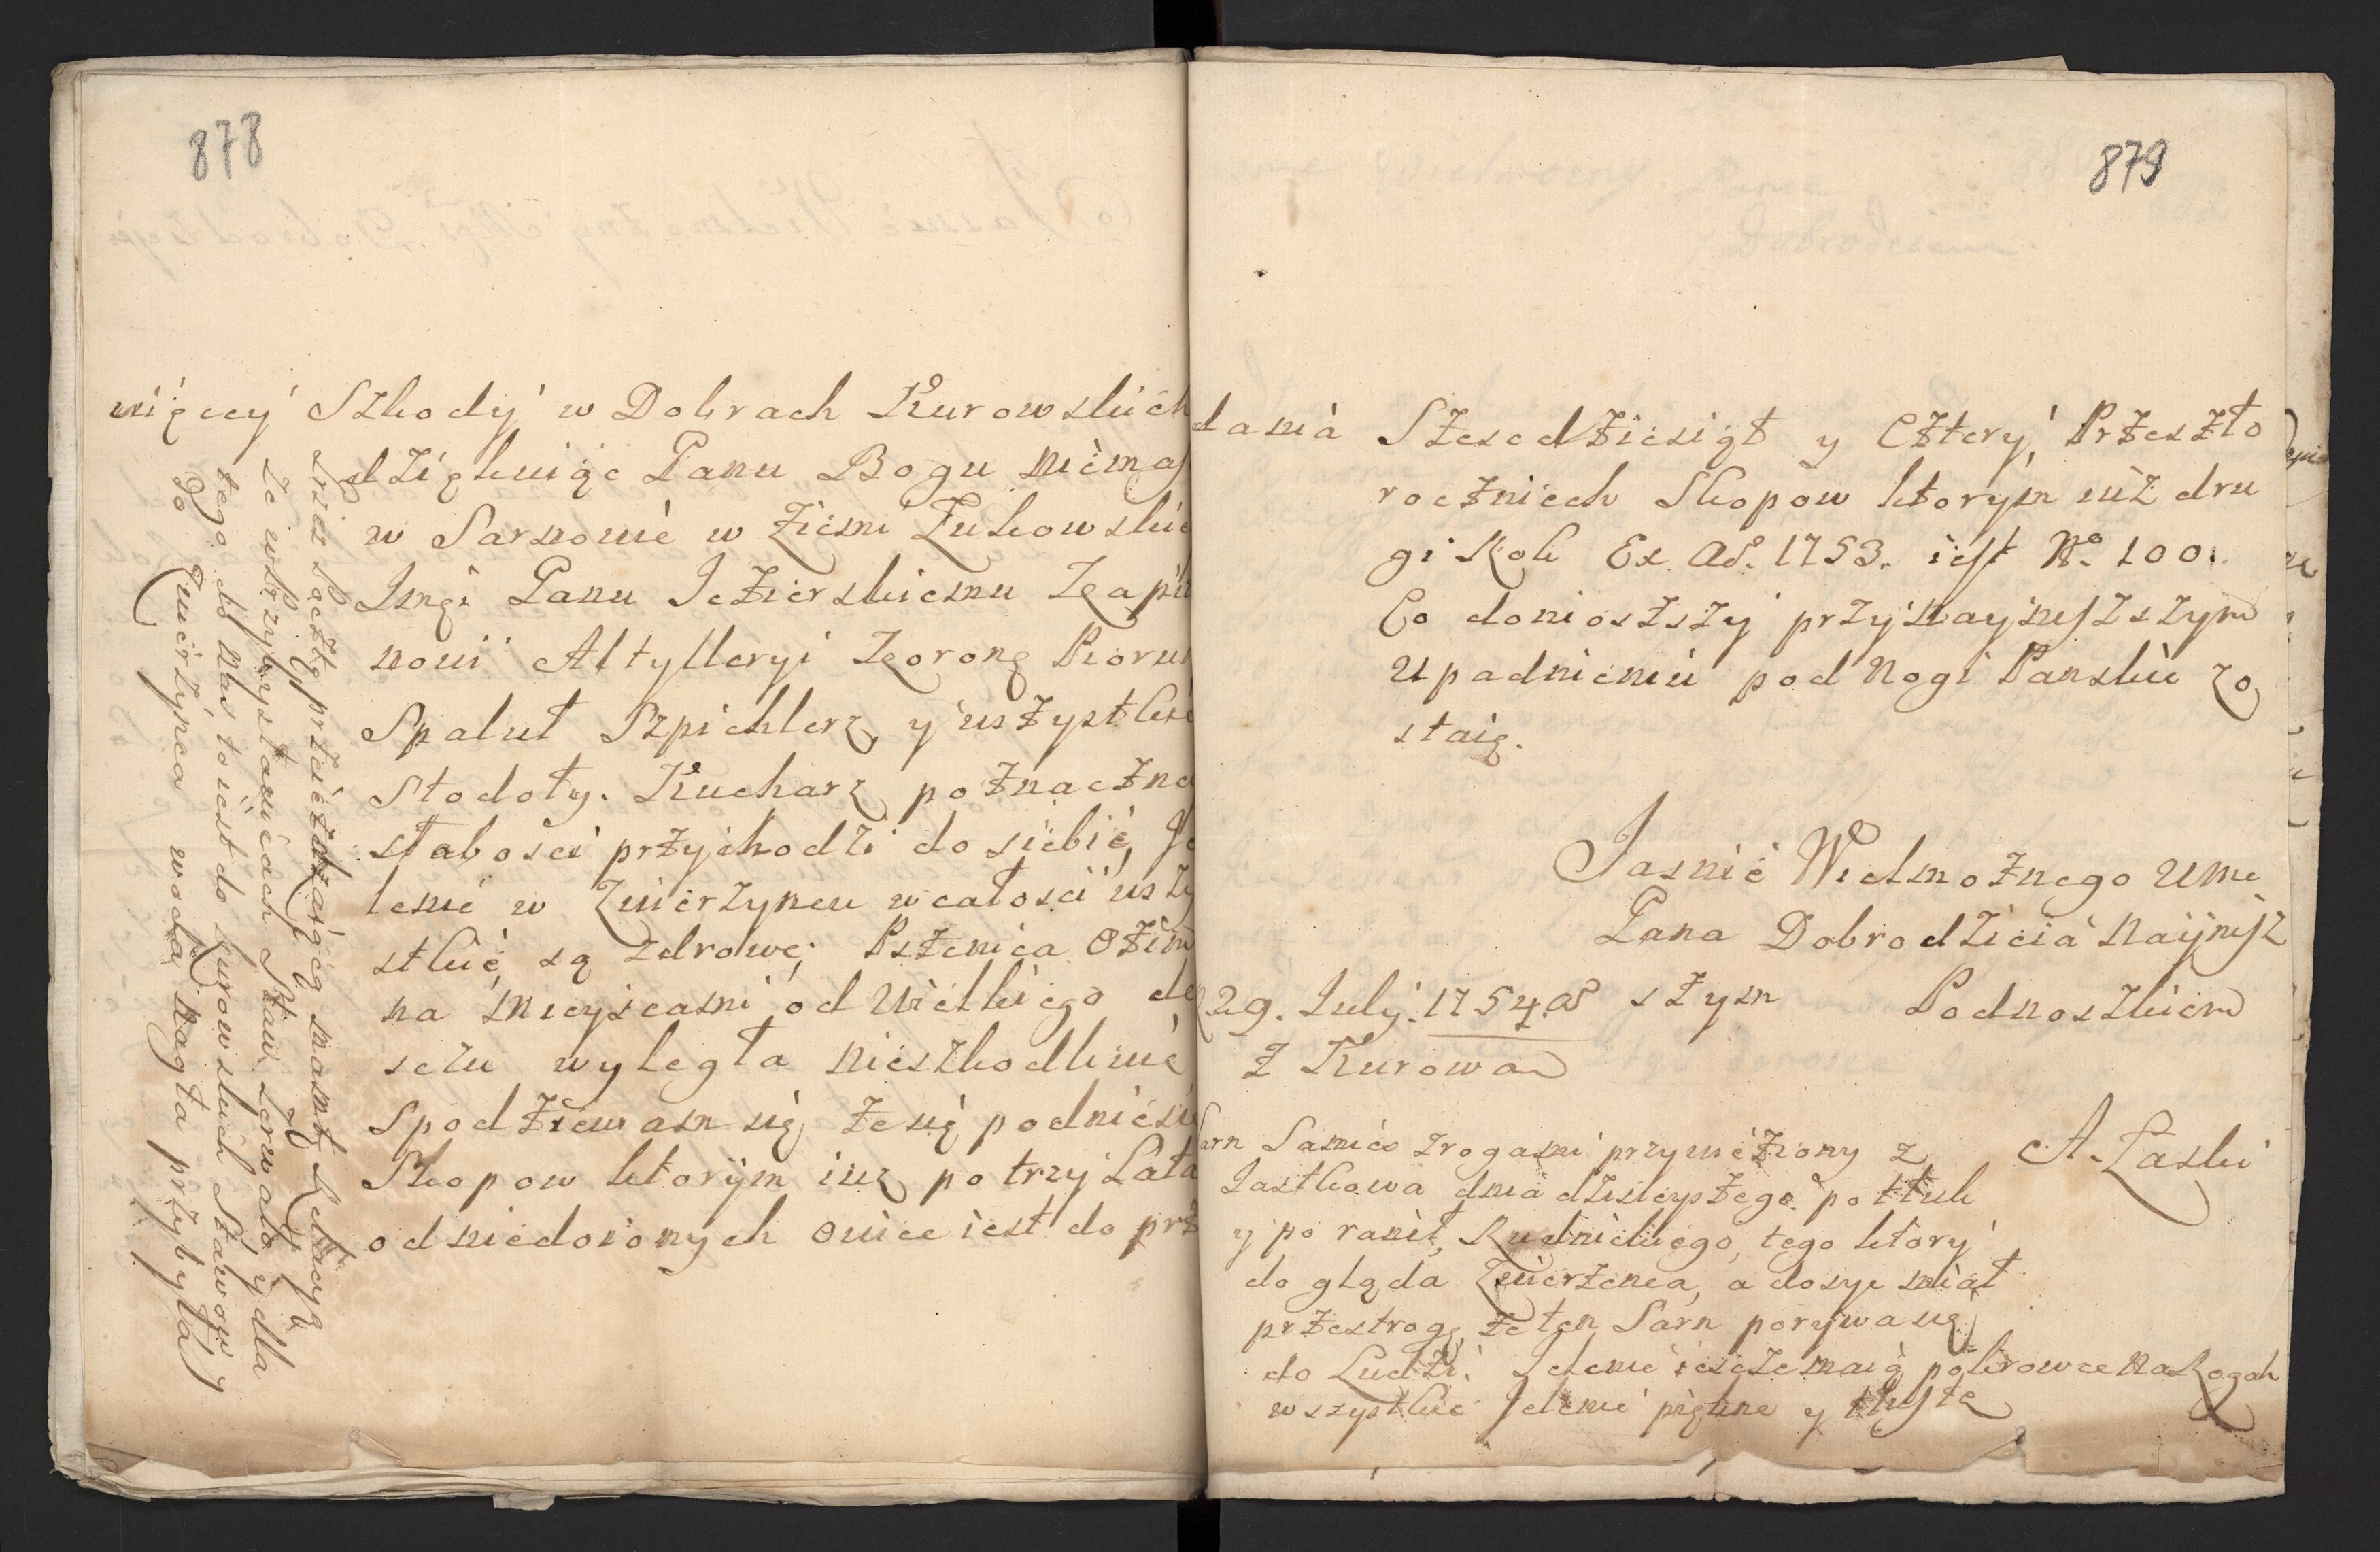 878
więcey Szkody w Dobrach Kurowskich
dziękuiąc Panu Bogu niemasz
w Sarnowie w Ziemi Łukowskie
Jmći Panu Jezierskiemu
nowi Altylleryi Koronę Piorun
Spalił Szpichlerz, y wszystkie
Stodoły. Kucharz po znaczne
słabosci przychodzi do siebie, Je
lenie w Zwierzyncu w całosci wszy
stkie są zdrowe; Pszenica Ozim
na mieyscami od Wielkiego de
sczu wyległa nieszkodliwie
Spodziewam się, ze się podniesie
Skopow ktorym iuz po trzy Lata
odniedoionych owiec iest do prze
przez Pocztę przeieżdzaiącą mamy Relacyą
że w Krzyksztanicach Staw zerwało y dla
tego do nas to iest do Kurowskich Stawow y
do Zwierzynca woda nagła przybyła
879
dania Szescdziesiąt y Cztery, Przeszło
roczniech Skopow ktorym iuż dru
gi Rok Ex Ao. 1753. iest No. 100.
Co doniozszy przy naynizszym
Upadnieniu pod Nogi Panskie zo
staię.
Jasnie Wielmoznego Ume
Pana Dobrodzieia Nayniz
29. July. 1754. Ao szym Podnoszkiem
Z Kurowa
A. Laski
Sarn Samiec z rogami przywieziony z
Jastkowa dnia dzisieyszego potłuk
y poranił Rudnickiego, tego ktory
dogląda Zwierzenca, a dosyc miał
przestrogę, ze ten Sarn porywa się
do Ludzi. Jelenie ieszcze maią pokrowce na Rogah
wszystkie Jelenie piękne y tłuste